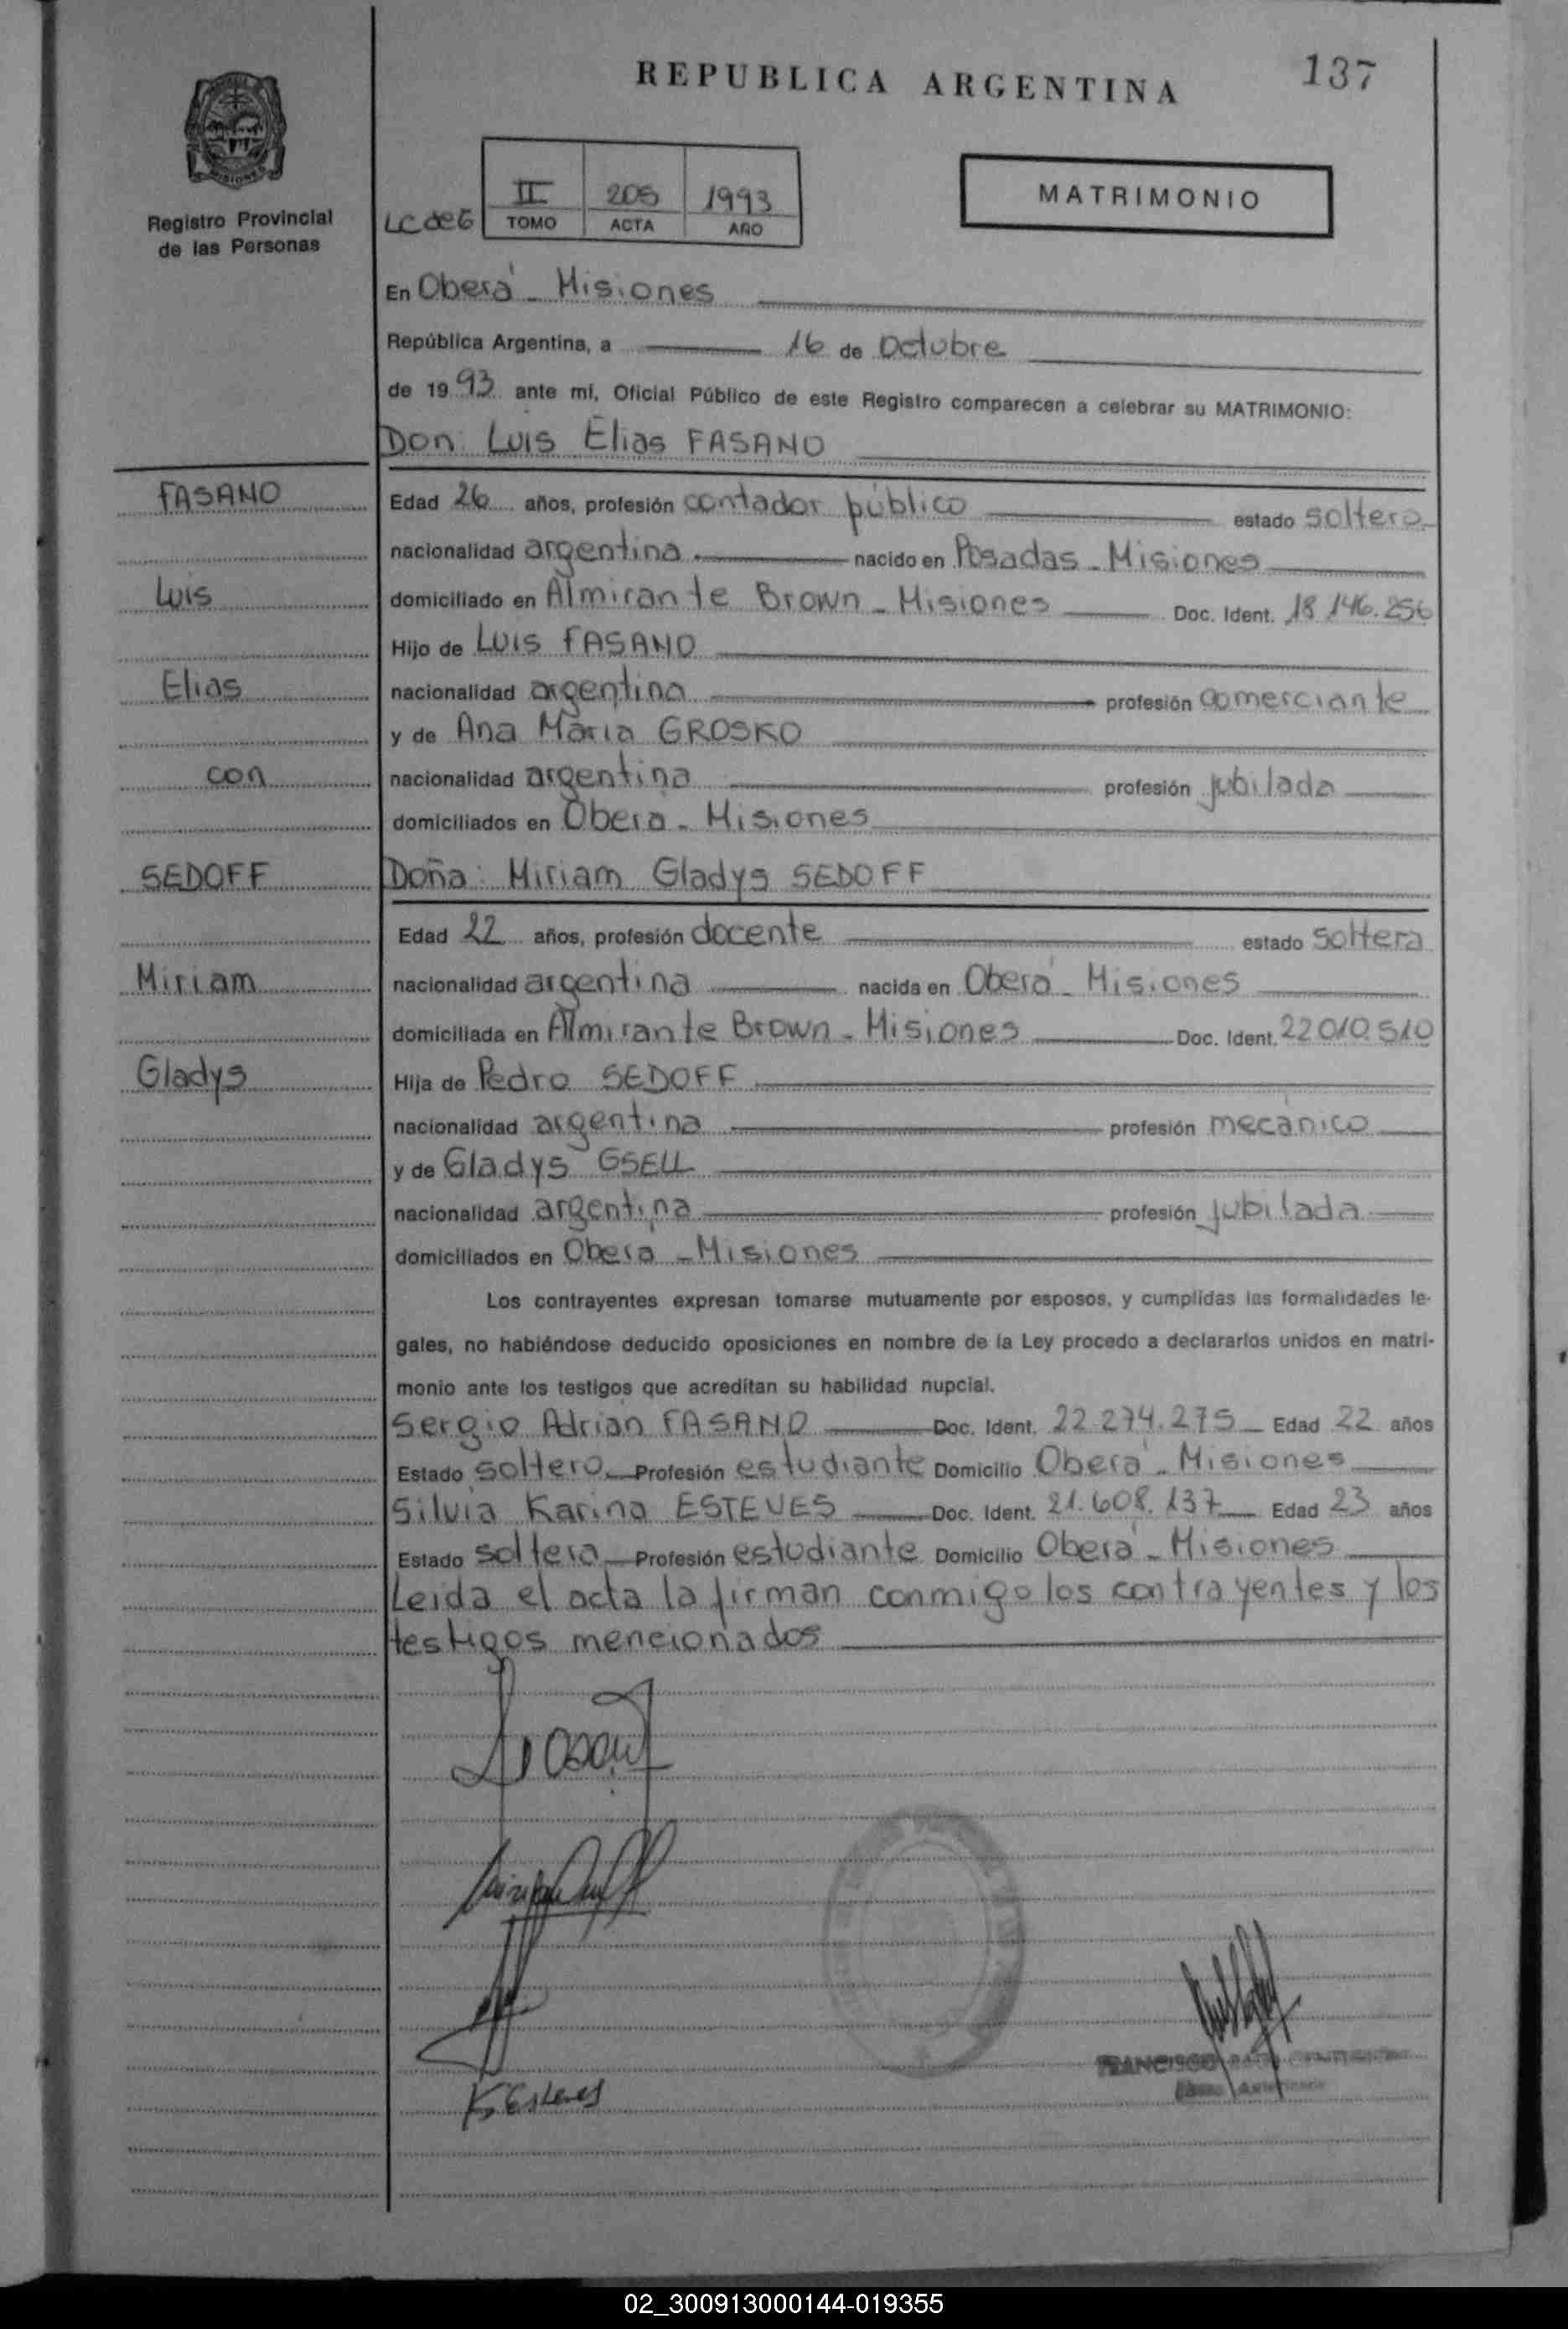 137
REPUBLICA ARGENTINA
MATRIMONIO
Registro Provincial
de las Personas
II 205 1993
TOMO ACTA AÑO
En Oberá - Misiones
República Argentina, a 16 de Octubre
de 1993 ante mi, Oficial Público de este Registro comparecen a celebrar su MATRIMONIO:
Don: Luis Elias FASANO
FASANO
Edad 26 años, profesión contador público estado soltero
nacionalidad argentina nacido en Posadas - Misiones
Luis
domiciliado en Almirante Brown - Misiones Doc. Ident. 18.146.256
Hijo de Luis FASANO
Elias
nacionalidad argentina profesión comerciante
y de Ana María GROSKO
con
nacionalidad argentina profesión jubilada
domiciliados en Oberá - Misiones
SEDOFF
Doña: Miriam Gladys SEDOFF
Edad 22 años, profesión docente estado soltera
Miriam
nacionalidad argentina nacida en Oberá - Misiones
domiciliada en Almirante Brown - Misiones Doc. Ident. 22.010.510
Gladys
Hija de Pedro SEDOFF
nacionalidad argentina profesión mecánico
y de Gladys GSELL
nacionalidad argentina profesión jubilada
domiciliados en Oberá - Misiones
Los contrayentes expresan tomarse mutuamente por esposos, y cumplidas las formalidades le-
gales, no habiéndose deducido oposiciones en nombre de la Ley procedo a declararlos unidos en matri-
monio ante los testigos que acreditan su habilidad nupcial.
Sergio Adrián FASANO Doc. Ident. 22.274.275 Edad 22 años
Estado soltero Profesión estudiante Domicilio Oberá - Misiones
Silvia Karina ESTEVES Doc. Ident. 21.608.137 Edad 23 años
Estado soltera Profesión estudiante Domicilio Oberá - Misiones
Leida el acta la firman conmigo los contrayentes y los
testigos mencionados
K Esteves
FRANCISCO
02_300913000144-019355